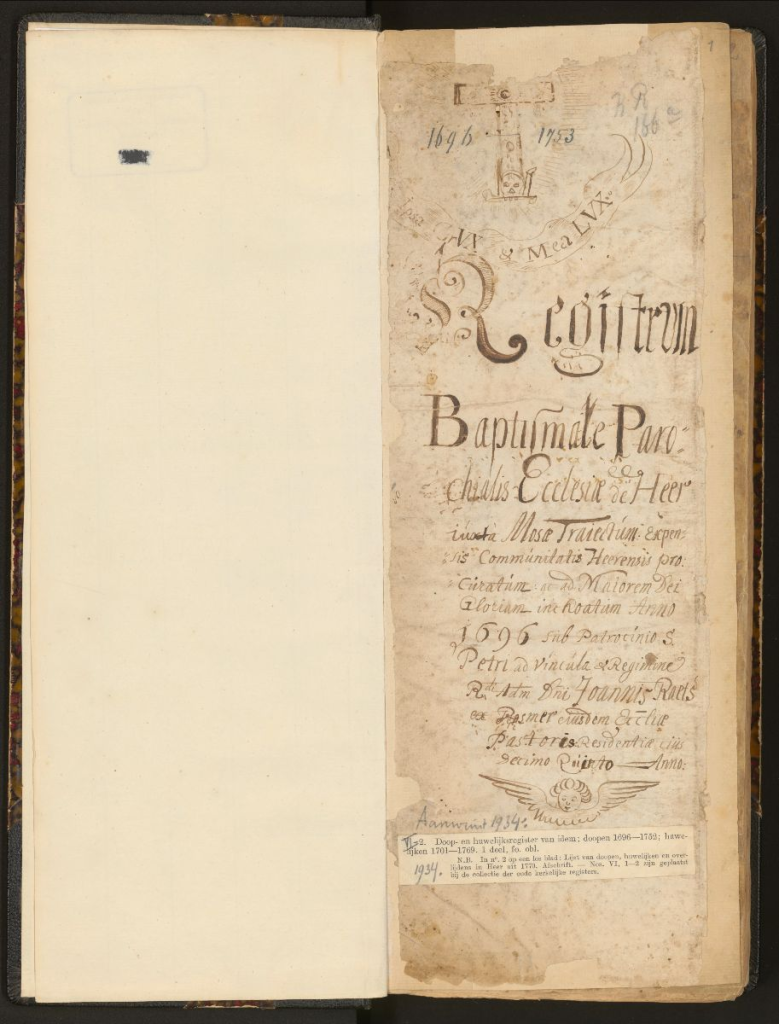 1
1696 1753
R
166 a
& Mea LVX
Registrum
Baptismale Paro-
chialis Ecclesiæ de Heer
iuxta Mosæ Traiectúm Expen-
sis Commúnitatis Heerensis pro-
Cúratúm ac ad Maiorem Dei
Gloriam inchoatúm Anno
1696 sub Patrocinio S.
Petri ad Vincúla & Regimine
R.di Adm Dni Joannis Raets
ex Rosmer eiusdem Eccliæ
Pastoris Residentiæ eiús
decimo Qúinto Anno:
Aanwinst 1934.
VI-2. Doop- en huwelijksregister van idem; doopen 1696—1752; huwe-
lijken 1701—1769. 1 deel, fo. obl.
N.B. In nº. 2 op een los blad: Lijst van doopen, huwelijken en over-
lijdens in Heer uit 1778. Afschrift. — Nos. VI, 1—2 zijn geplaatst
bij de collectie der oude kerkelijke registers.
1934.